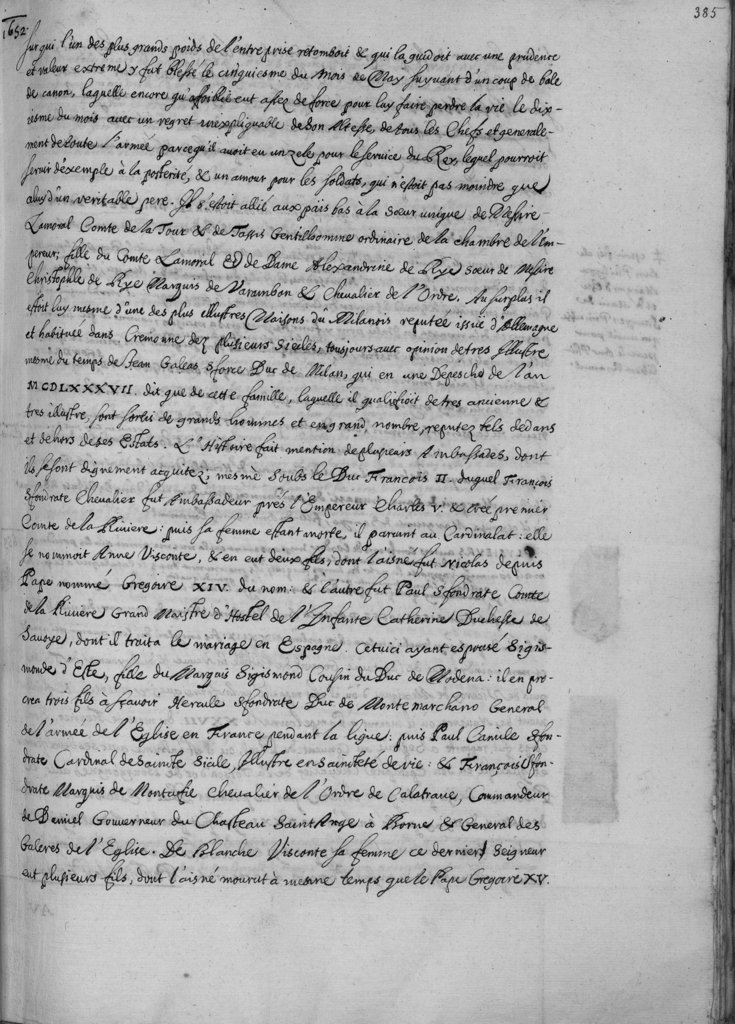 385
1652
sur qui l'un des plus grands poids de l'entreprise retomboit & qui la guidoit avec une prudence
et valeur extreme y fut blessé le cinquiesme du Mois de May suyvant d'un coup de bale
de canon, laquelle encore qu'affoiblie eut assez de force pour luy faire perdre la vie le dix-
iesme du mois avec un regret inexpliquable de son Altesse, de tous les Chefs et generale-
ment de toute l'armeé parcequ'il avoit eu un zele pour le service du Roy, lequel pourroit
servir d'éxemple à la posterité, & un amour pour les soldats, qui n'estoit pas moindre que
celuy d'un veritable pere. Il s'estoit allié aux païs bas à la soeur unique de Messire
Lamoral Comte de la Tour & de Tassis Gentilhomme ordinaire de la chambre de l'Em-
pereur; fille du Comte Lamoral & de Dame Alexandrine de Rye soeur de Messire
Christophle de Rye Marquis de Varambon & Chevalier de l'Ordre. Au surplus il
estoit luy mesme d'une des plus illustres Maisons du Milanois reputée issuë d'Allemagne
et habituee dans Cremonne dez plusieurs siecles, tousjours avec opinion de tres Illustre
mesme du temps de Jean Galeas Sforce Duc de Milan, qui en une Depesche de l'an
MCDLXXXVII. dit que de cette famille, laquelle il qualifioit de tres ancienne &
tres illustre, sont sortis de grands hommes et en grand nombre, reputez tels dedans
et dehors de ses Estats. L'Histoire fait mention de plusieurs Ambassades, dont
ils se sont dignement acquitez; mesme soubs le Duc François II. duquel François
Sfondrate Chevalier fut Ambassadeur prés l'Empereur Charles V. & creé premier
Comte de la Riviere: puis sa femme estant morte, il parvint au Cardinalat: elle
se nommoit Anne Visconte, & en eut deux fils, dont l'aisné fut Nicolas depuis
Pape nommé Gregoire XIV. du nom: & l'autre fut Paul Sfondrate Comte
de la Riviére Grand Maistre d'Hostel de l'Infante Catherine Duchesse de
Savoye, dont il traita le mariage en Espagne. Cetuici ayant espousé Sigis-
monde d'Este, fille du Marquis Sigismond Cousin du Duc de Modena: il en pro-
crea trois fils à sçavoir Hercule Sfondrate Duc de Monte marchano General
de l'armée de l'Eglise en France pendant la ligue: puis Paul Camille Sfon-
drate Cardinal de Sainte Sicile, Illustre en sainteté de vie: & François Sfon-
drate Marquis de Montafie Chevalier de l'Ordre de Calatrave, Commandeur
de Bemiel Gouverneur du Chasteau Saint Ange à Rome & General des
Galeres de l'Eglise. De Blanche Visconte sa femme ce dernier Seigneur
eut plusieurs fils, dont l'aisné mourut à mesme temps que le Pape Gregoire XV.